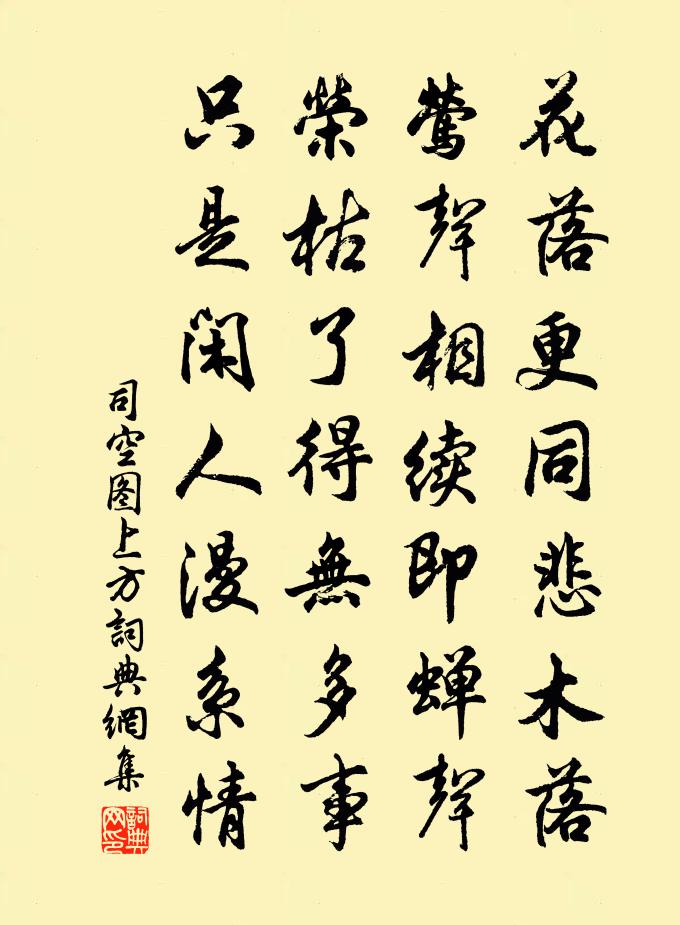 花落更同悲木落
莺聲相续即蝉聲
榮枯了得無多事
只是闲人漫系情
司空图上方詞典網集
詞典网印